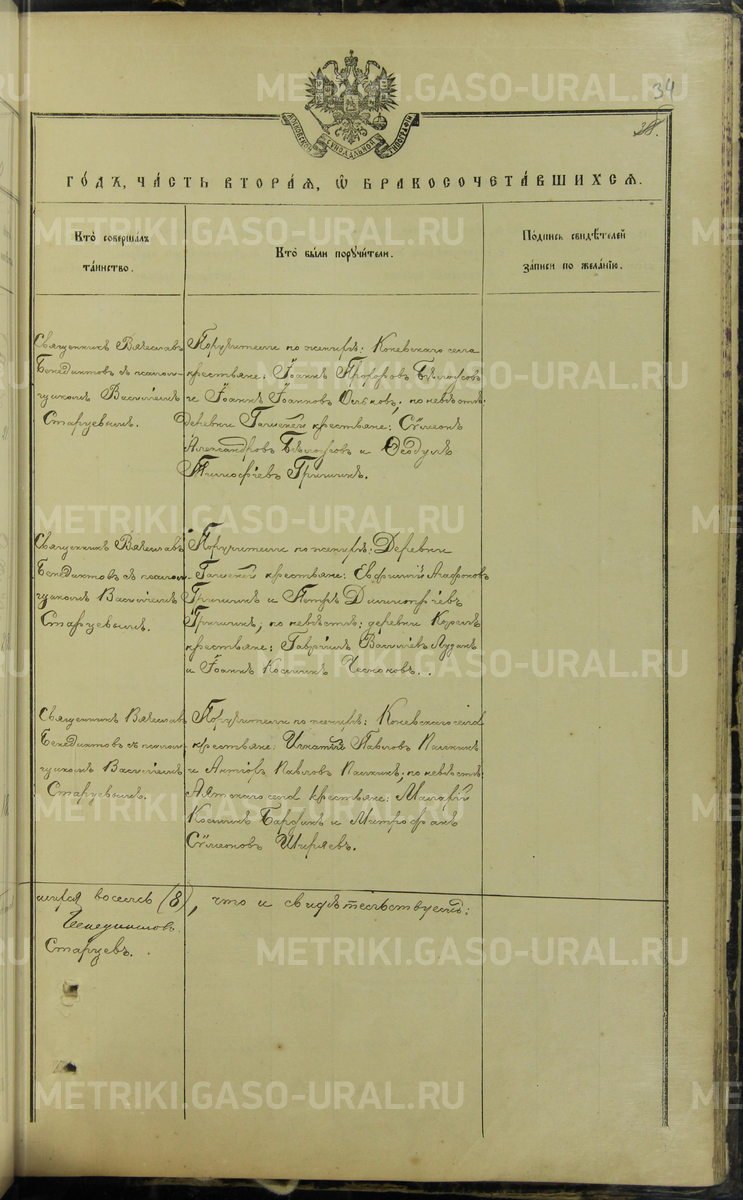 34
МОСКОВСКОЙ СѴНОДАЛЬНОЙ ТИПОГРАФІИ
ГО́ДЪ, ЧА́СТЬ ВТОРА́Я, Ѿ БРАКОСОЧЕТА́ВШИХСЯ.
Кто̀ совершалъ
та́инство.
Кто̀ бы́ли порꙋчи́тели.
По́дпись свидѣ́телей
за́писи по жела́нію.
Священникъ Вячеславъ
Бенедиктовъ съ псалом-
щикомъ Василіемъ
Старцевымъ.
Поручители по женихѣ: Коневскаго села
крестьяне: Іоаннъ Прохоровъ Бѣлоусовъ
и Іоаннъ Іоанновъ; по невѣстѣ:
деревни крестьяне: Сѵмеонъ
Александровъ и Ѳеодулъ
Тимофѣевъ Гришинъ.
Священникъ Вячеславъ
Бенедиктовъ съ псалом-
щикомъ Василіемъ
Старцевымъ.
Поручители по женихѣ: Деревни
крестьяне: Евфимій Агафоновъ
Гришинъ и Петръ Димитріевъ
Гришинъ; по невѣстѣ: деревни
крестьяне: Гавріилъ Васильевъ
и Іоаннъ Косминъ Чесноковъ.
Священникъ Вячеславъ
Бенедиктовъ съ псалом-
щикомъ Василіемъ
Старцевымъ.
Поручители по женихѣ: Коневскаго села
крестьяне: Игнатій Павловъ Палкинъ
и Павловъ Палкинъ; по невѣстѣ:
Аятскаго села крестьяне:
Косминъ и Митрофанъ
Сѵмеоновъ Ширяевъ.
восемь (8), что и свидѣтельствуемъ:
Бенедиктовъ.
Старцевъ.
METRIKI.GASO-URAL.RU